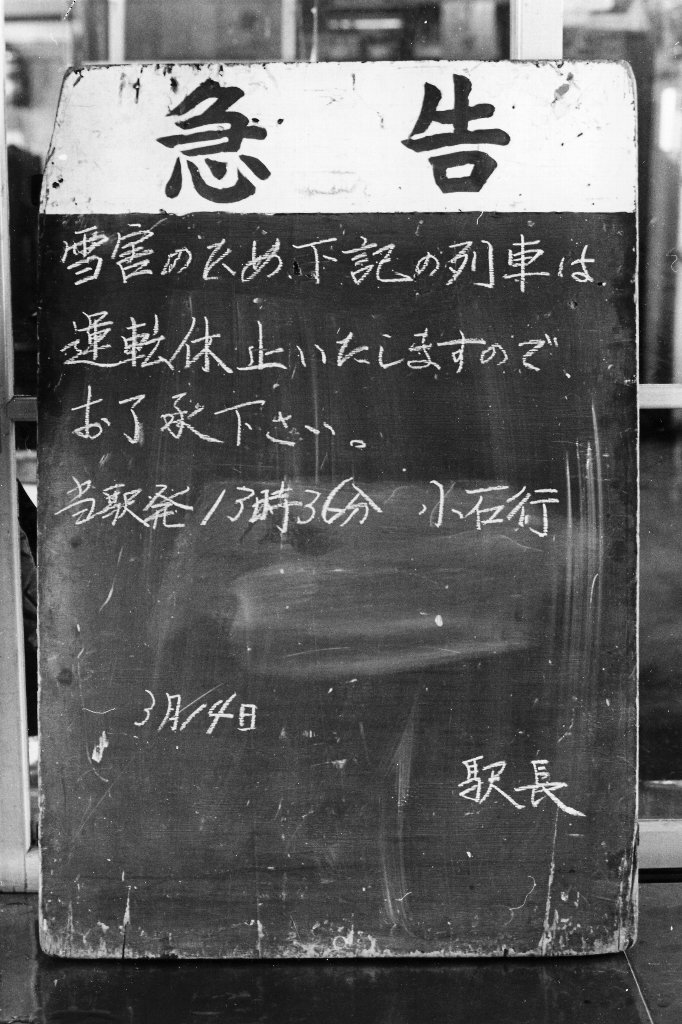 急告
雪害のため下記の列車は
運転休止いたしますので、
お了承下さい。
当駅発13時36分 小石行
3月14日
駅長